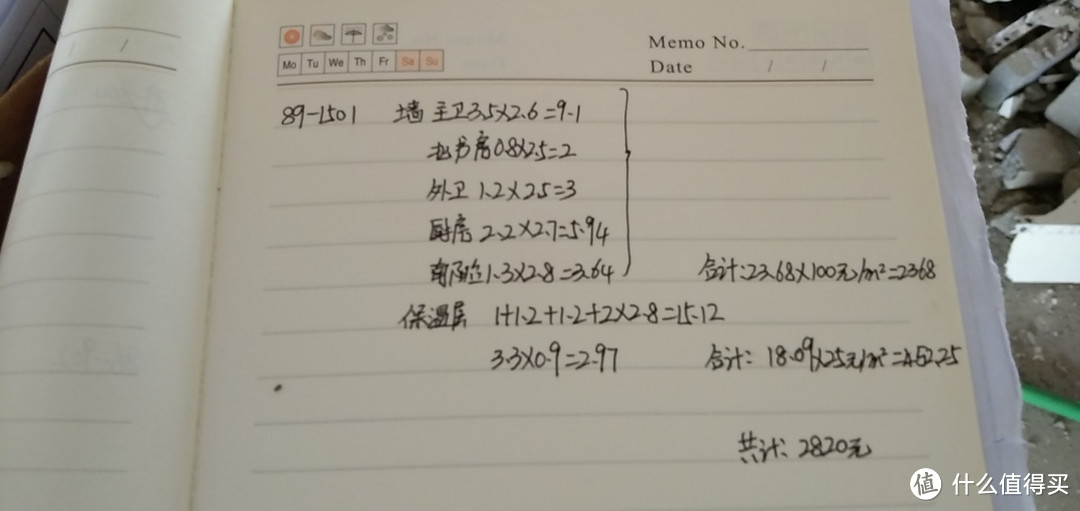 Memo No.
Mo Tu We Th Fr Sa Su
Date / /
89-1501 土墙 主卫3.5×2.6=9.1
北书房0.8×2.5=2
外卫1.2×2.5=3
厨房2.2×2.7=5.94
南阳台1.3×2.8=3.64 合计:23.68×100元/m²=2368
保温层 1+1.2+1.2+2×2.8=15.12
3.3×0.9=2.97 合计:18.09×25元/m²=452.25
共计:2820元
值 什么值得买